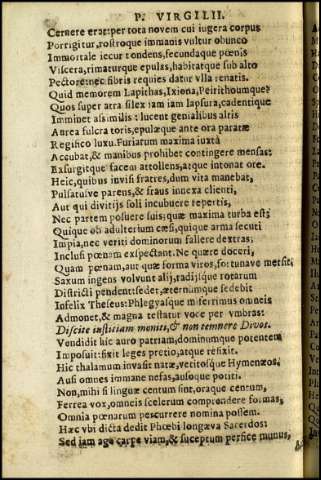 P. VIRGILII.
Cernere erat: per tota novem cui iugera corpus
Porrigitur, rostroque immanis vultur obunco
Immortale iecur tondens, fecundaque pœnis
Viscera, rimaturque epulas, habitatque sub alto
Pectore: nec fibris requies datur vlla renatis.
Quid memorem Lapithas, Ixiona, Peirithoumque?
Quos super atra silex iam iam lapsura, cadentique
Imminet assimilis: lucent genialibus altis
Aurea fulcra toris, epulæque ante ora paratæ
Regifico luxu. Furiarum maxima iuxtà
Accubat, & manibus prohibet contingere mensas:
Exsurgitque facem attollens, atque intonat ore.
Heic, quibus invisi fratres, dum vita manebat,
Pulsatusve parens, & fraus innexa clienti,
Aut qui divitijs soli incubuere repertis,
Nec partem posuere suis; quæ maxima turba est;
Quique ob adulterium cæsi, quique arma secuti
Impia, nec veriti dominorum fallere dextras;
Inclusi pœnam exspectant. Ne quære doceri,
Quam pœnam, aut quæ forma viros, fortunave mersit.
Saxum ingens volvunt alij, radijsque rotarum
Districti pendent: sedet, æternumque sedebit
Infelix Theseus: Phlegyasque miserrimus omneis
Admonet, & magna testatur voce per vmbras:
Discite iusticiam moniti, & non temnere Divos.
Vendidit hic auro patriam, dominumque potentem
Imposuit: fixit leges pretio, atque refixit.
Hic thalamum invasit natæ, vetitosque Hymenæos.
Ausi omnes immane nefas, ausoque potiti.
Non, mihi si linguæ centum sint, oraque centum,
Ferrea vox, omneis scelerum comprendere formas,
Omnia pœnarum percurrere nomina possem.
Hæc vbi dicta dedit Phœbi longæva Sacerdos:
Sed iam age carpe viam, & susceptum perfice munus,